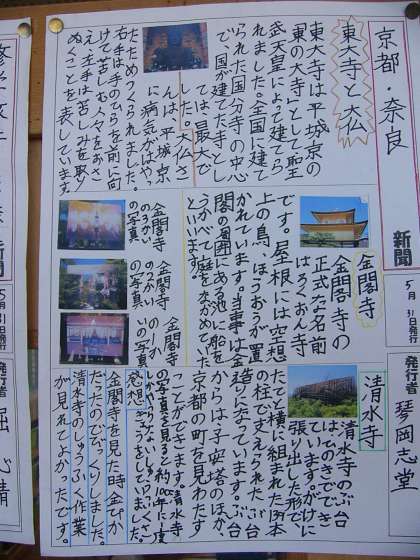 京都・奈良
新聞
5月31日発行
発行者
琴岡志堂
東大寺と大仏
東大寺は平城京の
「東の大寺」として聖
武天皇によって建てら
れました。全国に建て
られた国分寺の中心
で、国が建てた寺とし
ては最大で
した。大仏さ
んは、平城京
に病気がはやっ
たためつくられました。
右手は手のひらを前に向
けて苦しむ人々をおさ
え、左手は苦しみを取り
ぬくことを表しています
金閣寺
金閣寺の
正式な名前
はろくおん寺
です。屋根には空想
上の鳥、ほうおうが置
かれています。当事は金
閣の周囲にある池に船を
うかべて庭をながめていた
といいます。
金閣寺
の3かい
の写真
金閣寺
の2かい
の写真
金閣寺
の1かい
の写真
清水寺
清水寺のぶ台
はひのきでできて
います。がけに
張り出した形で
たてと横に組まれた139本
の柱で支えられた、ぶ台
造りになっています。ぶ台
からは、子安塔のほか、
京都の町を見わたす
ことができます。清水寺
の写真を見ると約100年に1度
しかやらない
感想
金閣寺を見た時金ぴか
だったのでびっくりしました。
清水寺のしゅうふく作業
が見れてよかったです。
新聞
5月31日発行
発行者